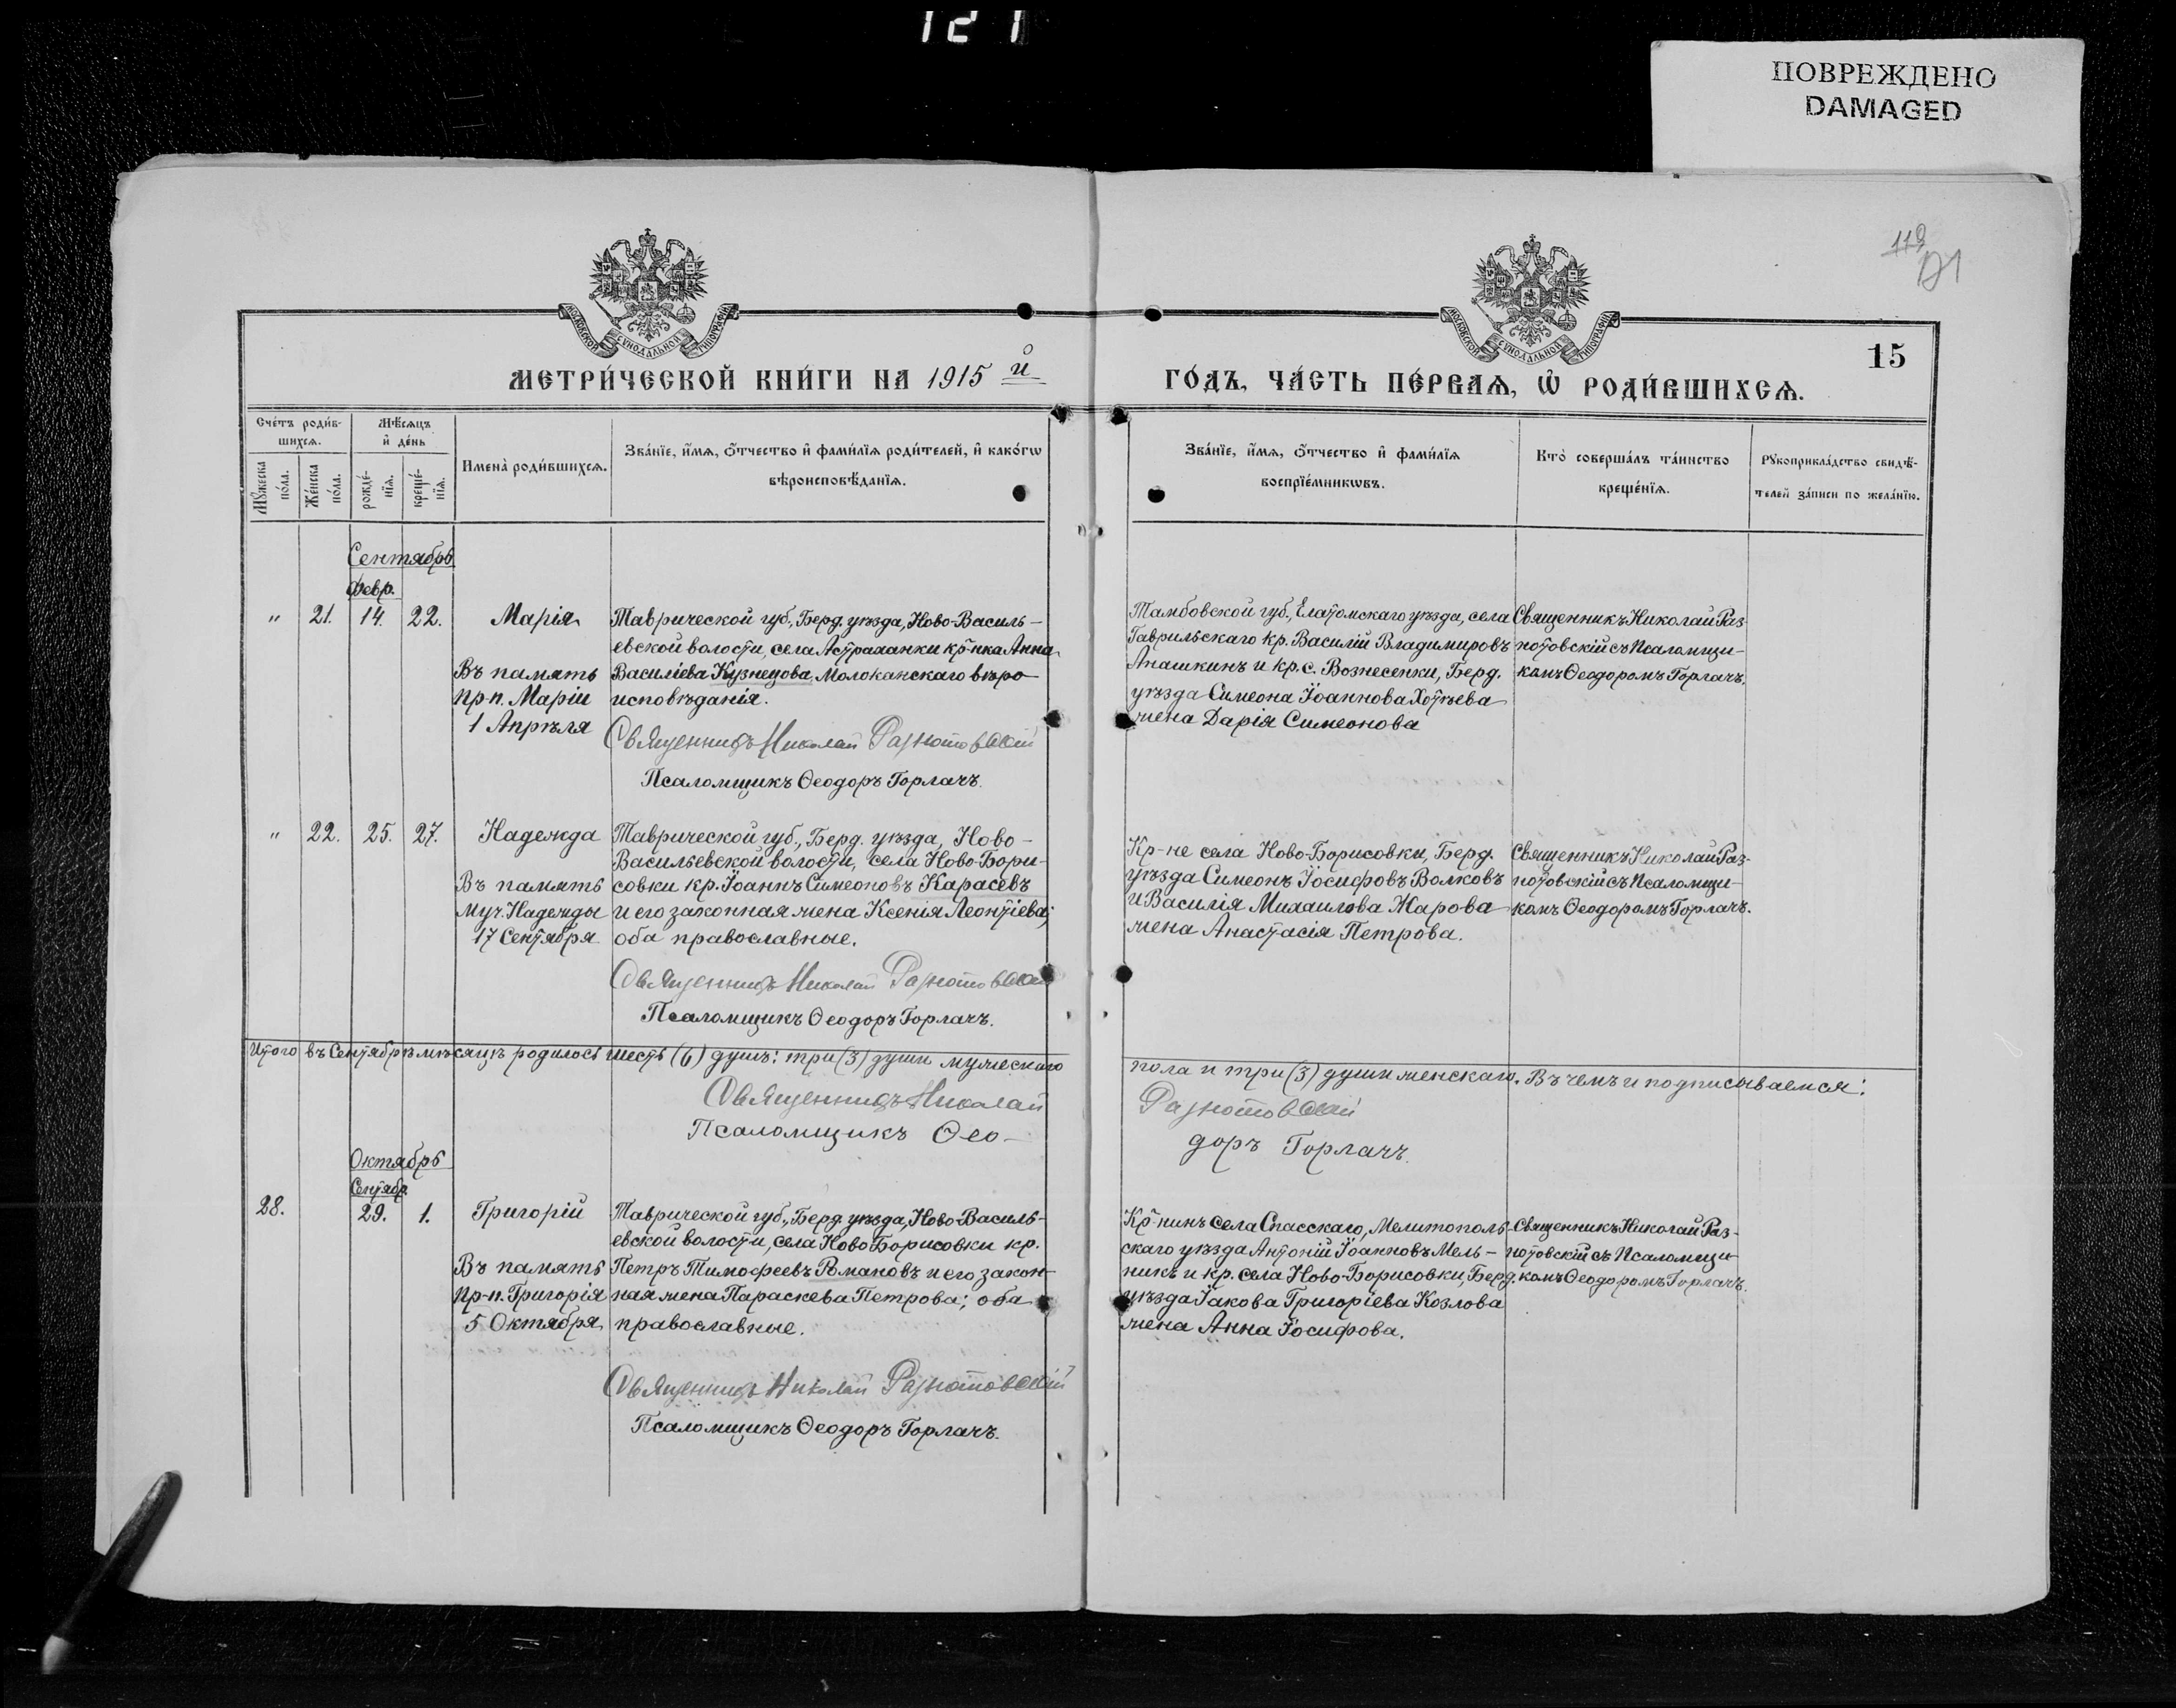 121
ПОВРЕЖДЕНО
DAMAGED
119
121
МОСКОВСКОЙ СѴНОДАЛЬНОЙ ТИПОГРАФІИ
МОСКОВСКОЙ СѴНОДАЛЬНОЙ ТИПОГРАФІИ
15
МЕТРИ́ЧЕСКОЙ КНИ́ГИ НА 1915 й
ГО́ДЪ, ЧА́СТЬ ПЕ́РВАѦ, Ѡ҆ РОДИ́ВШИХСѦ.
Сче́тъ роди́в-
шихсѧ.
Мѣ́сѧцъ
и҆ де́нь
Мꙋ́жеска
по́ла.
Же́нска
по́ла.
рожде́-
нїѧ.
креще́-
нїѧ.
Имена̀ роди́вшихсѧ.
Зва́нїе, и҆́мѧ, ѻ҆́тчество и҆ фами́лїѧ роди́телей, и҆ како́гѡ
вѣроисповѣ́данїѧ.
Зва́нїе, и҆́мѧ, ѻ҆́тчество и҆ фами́лїѧ
воспрїе́мникѡвъ.
Кто̀ соверша́лъ та́инство
креще́нїѧ.
Рꙋкоприкла́дство свидѣ́-
телей за́писи по жела́нїю.
Сентябрь
Февр.
" 21. 14. 22. Марія
Въ память
пр-п. Маріи
1 Апрѣля
Таврической губ., Берд. уѣзда, Ново-Василь-
евской волости, села Астраханки кр-нка Анна
Василіева Кузнецова, Молоканскаго вѣро-
исповѣданія.
Священникъ Николай Разнотовскій
Псаломщикъ Ѳеодоръ Горлачъ.
Тамбовской губ., Елатомскаго уѣзда, села
Гаврильскаго кр. Василій Владимировъ
Анашкинъ и кр. с. Вознесенки, Берд.
уѣзда Симеона Іоаннова Хотѣева
жена Дарія Симеонова
Священникъ Николай Раз-
нотовскій съ Псаломщи-
комъ Ѳеодоромъ Горлачъ.
" 22. 25. 27. Надежда
Въ память
муч. Надежды
17 Сентября
Таврической губ., Берд. уѣзда, Ново-
Васильевской волости, села Ново-Бори-
совки кр. Іоаннъ Симеоновъ Карасёвъ
и его законная жена Ксенія Леонтіева;
оба православные.
Священникъ Николай Разнотовскій
Псаломщикъ Ѳеодоръ Горлачъ.
Кр-не села Ново-Борисовки, Берд.
уѣзда Симеонъ Іосифовъ Волковъ
и Василія Михаилова Жарова
жена Анастасія Петрова.
Священникъ Николай Раз-
нотовскій съ Псаломщи-
комъ Ѳеодоромъ Горлачъ.
Итого въ Сентябрѣ мѣсяцѣ родилось шесть (6) душъ: три (3) души мужескаго
пола и три (3) души женскаго. Въ чемъ и подписываемся:
Священникъ Николай
Разнотовскій
Псаломщикъ Ѳео-
доръ Горлачъ.
Октябрь
Сентябр.
28. 29. 1. Григорій
Въ память
пр-п. Григорія
5 Октября
Таврической губ., Берд. уѣзда, Ново-Василь-
евской волости, села Ново-Борисовки кр.
Петръ Тимофеевъ Романовъ и его закон-
ная жена Параскева Петрова; оба
православные.
Священникъ Николай Разнотовскій
Псаломщикъ Ѳеодоръ Горлачъ.
Кр-нинъ села Спасскаго, Мелитополь-
скаго уѣзда Антоній Іоанновъ Мель-
никъ и кр. села Ново-Борисовки, Берд.
уѣзда Іакова Григоріева Козлова
жена Анна Іосифова.
Священникъ Николай Раз-
нотовскій съ Псаломщи-
комъ Ѳеодоромъ Горлачъ.